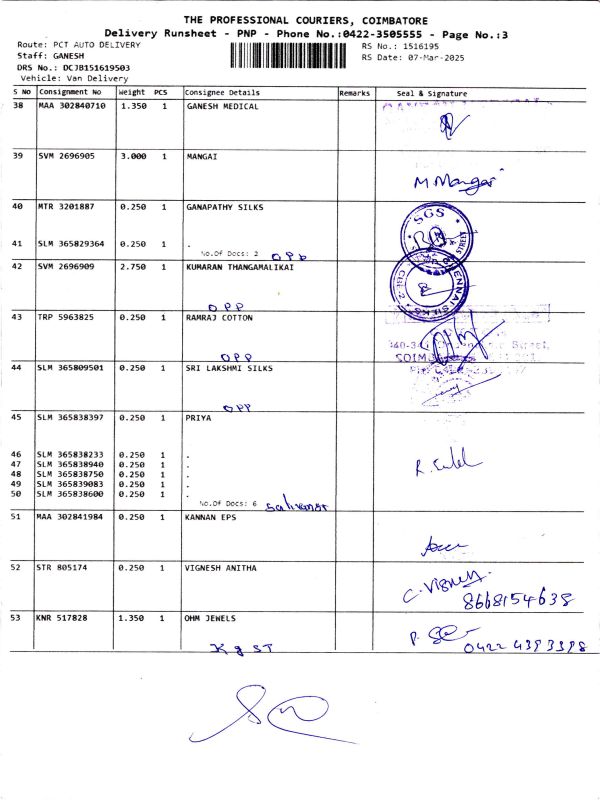 THE PROFESSIONAL COURIERS, COIMBATORE
Delivery Runsheet - PNP - Phone No.:0422-3505555 - Page No.:3
Route: PCT AUTO DELIVERY RS No.: 1516195
Staff: GANESH RS Date: 07-Mar-2025
DRS No.: DCJB151619503
Vehicle: Van Delivery
S NO Consignment No Weight PCS Consignee Details Remarks Seal & Signature
38 MAA 302840710 1.350 1 GANESH MEDICAL
39 SVM 2696905 3.000 1 MANGAI
M.Mangai
40 MTR 3201887 0.250 1 GANAPATHY SILKS
SGS
STREET
41 SLM 365829364 0.250 1 .
No.Of Docs: 2 OPP
42 SVM 2696909 2.750 1 KUMARAN THANGAMALIKAI
CBE.2
OPP
43 TRP 5963825 0.250 1 RAMRAJ COTTON
OPP
44 SLM 365809501 0.250 1 SRI LAKSHMI SILKS
OPP
45 SLM 365838397 0.250 1 PRIYA
46 SLM 365838233 0.250 1 .
47 SLM 365838940 0.250 1 .
48 SLM 365838750 0.250 1 .
49 SLM 365839083 0.250 1 .
50 SLM 365838600 0.250 1 .
No.Of Docs: 6
51 MAA 302841984 0.250 1 KANNAN EPS
52 STR 805174 0.250 1 VIGNESH ANITHA
C.Vignesh
8668154638
53 KNR 517828 1.350 1 OHM JEWELS
K g ST
0422 4393398